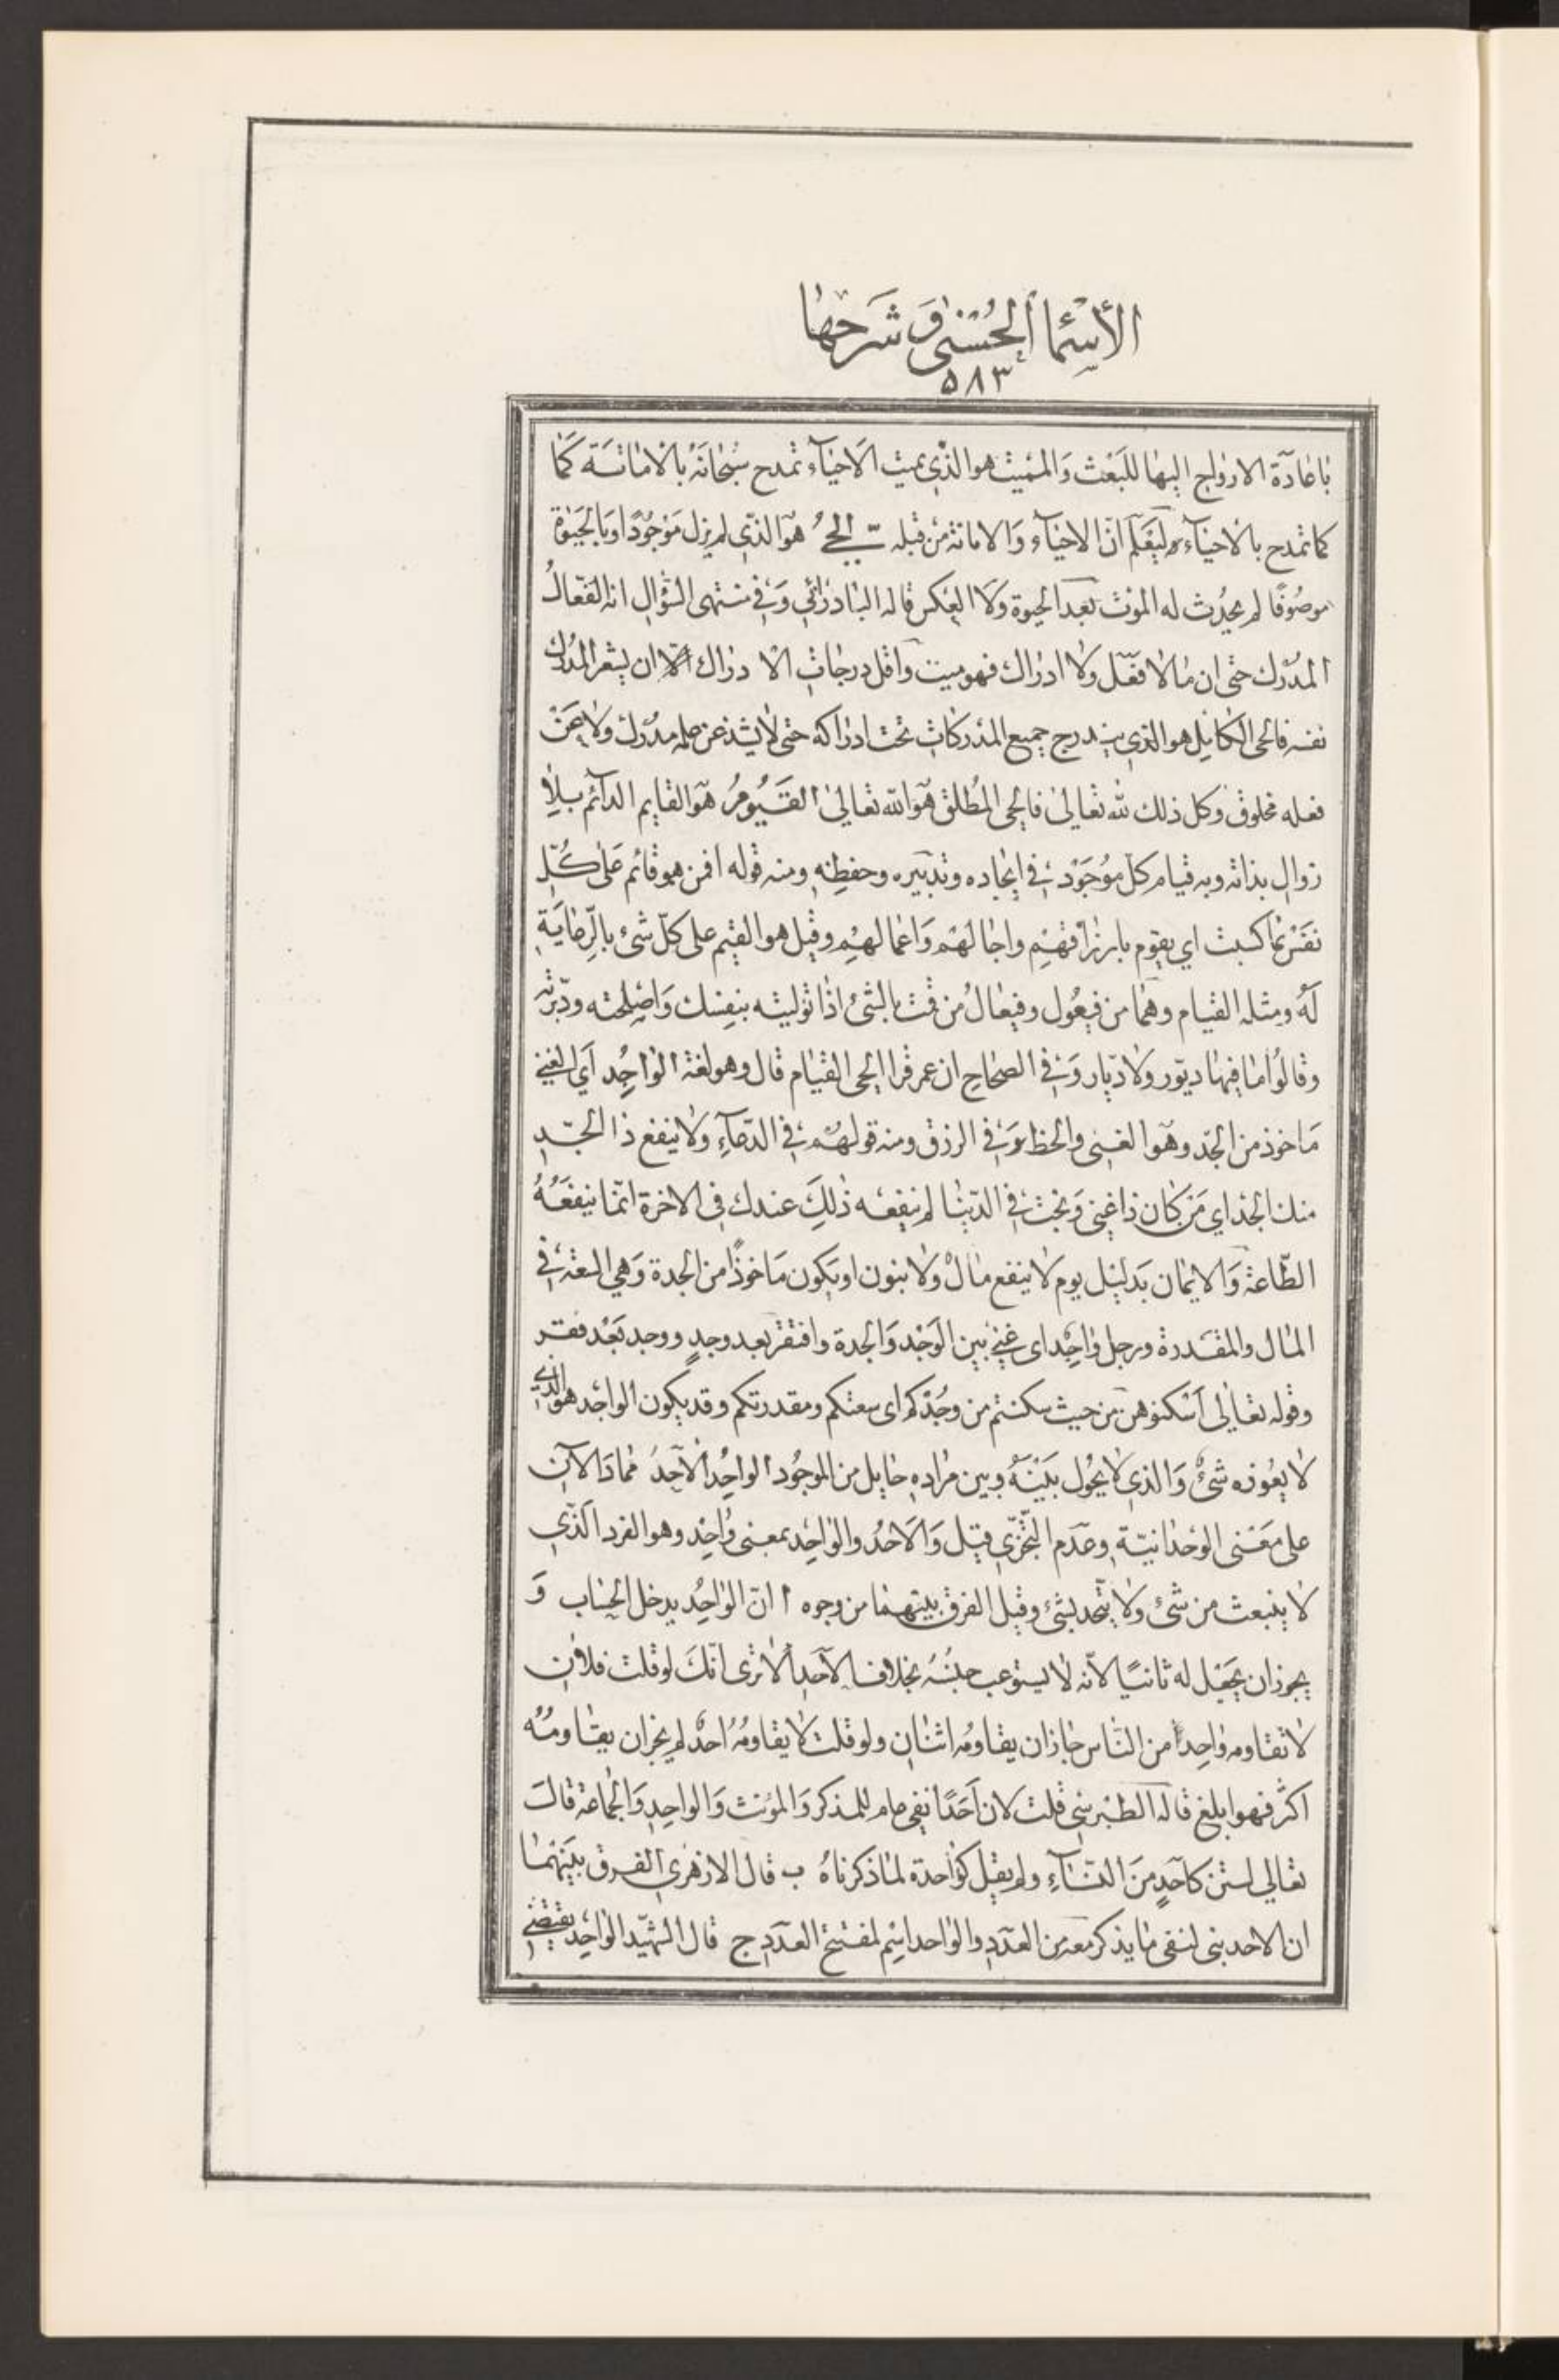 الأسماء الحسنى و شرحها
٥٨٣
باعادة الارواح اليها للبعث والمميت هو الذي يميت الاحياء تمدح سبحانه بالاماتة كما
كما تمدح بالاحياء ليعلم ان الاحياء والاماتة من قبله الحي هو الذي لم يزل موجودا وبالحيوة
موصوفا لم يحدث له الموت بعد الحيوة ولا العكس قاله البادرائي وفي منتهى السؤال انه الفعال
المدرك حتى ان ما لا فعل ولا ادراك فهو ميت واقل درجات الادراك الا ان يشعر المدرك
نفسه فالحي الكامل هو الذي يندرج جميع المدركات تحت ادراكه حتى لا يشذ عن علمه مدرك ولا عن
فعله مخلوق وكل ذلك لله تعالى فالحي المطلق هو الله تعالى القيوم هو القايم الدائم بلا
زوال بذاته وبه قيام كل موجود في ايجاده وتدبيره وحفظه ومنه قوله افمن هو قائم على كل
نفس بما كسبت اي يقوم بارزاقهم واجالهم واعمالهم وقيل هو القيم على كل شئ بالرعاية
له ومثله القيام وهما من فيعول وفيعال من قمت بالشئ اذا توليته بنفسك واصلحته ودبرته
وقالوا ما فيها ديور ولا ديار وفي الصحاح ان عمر قرا الحي القيام قال وهو لغة الواجد اي الغني
ماخوذ من الجد وهو الغنى والحظ في الرزق ومنه قولهم في الدعاء ولا ينفع ذا الجد
منك الجد اي من كان ذا غنى وبخت في الدنيا لم ينفعه ذلك عندك في الاخرة انما ينفعه
الطاعة والايمان بدليل يوم لا ينفع مال ولا بنون او يكون ماخوذا من الجدة وهي السعة في
المال والمقدرة ورجل واجد اي غني بين الوجد والجدة وافتقر بعد وجد ووجد بعد فقر
وقوله تعالى اسكنوهن من حيث سكنتم من وجدكم اي سعتكم ومقدرتكم وقد يكون الواجد هو الذي
لا يعوزه شئ والذي لا يحول بينه وبين مراده حايل من الموجود الواحد الاحد هما دالان
على معنى الوحدانية وعدم التجزي قيل والاحد والواحد بمعنى واحد وهو الفرد الذي
لا ينبعث من شئ ولا يتحد بشئ وقيل الفرق بينهما من وجوه ا ان الواحد يدخل الحساب و
يجوز ان يجعل له ثانيا لانه لا يستوعب جنسه بخلاف الاحد الا ترى انك لو قلت فلان
لا يقاومه واحدا من الناس جاز ان يقاومه اثنان ولو قلت لا يقاومه احد لم يجز ان يقاومه
اكثر فهو ابلغ قاله الطبرسي قلت لان احدا نفي عام للمذكر والمؤنث والواحد والجماعة قال
تعالى لستن كاحد من النساء ولم يقل كواحدة لما ذكرناه ب قال الازهري الفرق بينهما
ان الاحد بني لنفي ما يذكر معه من العدد والواحد اسم لمفتتح العدد ج قال الشهيد الواحد يقتضي